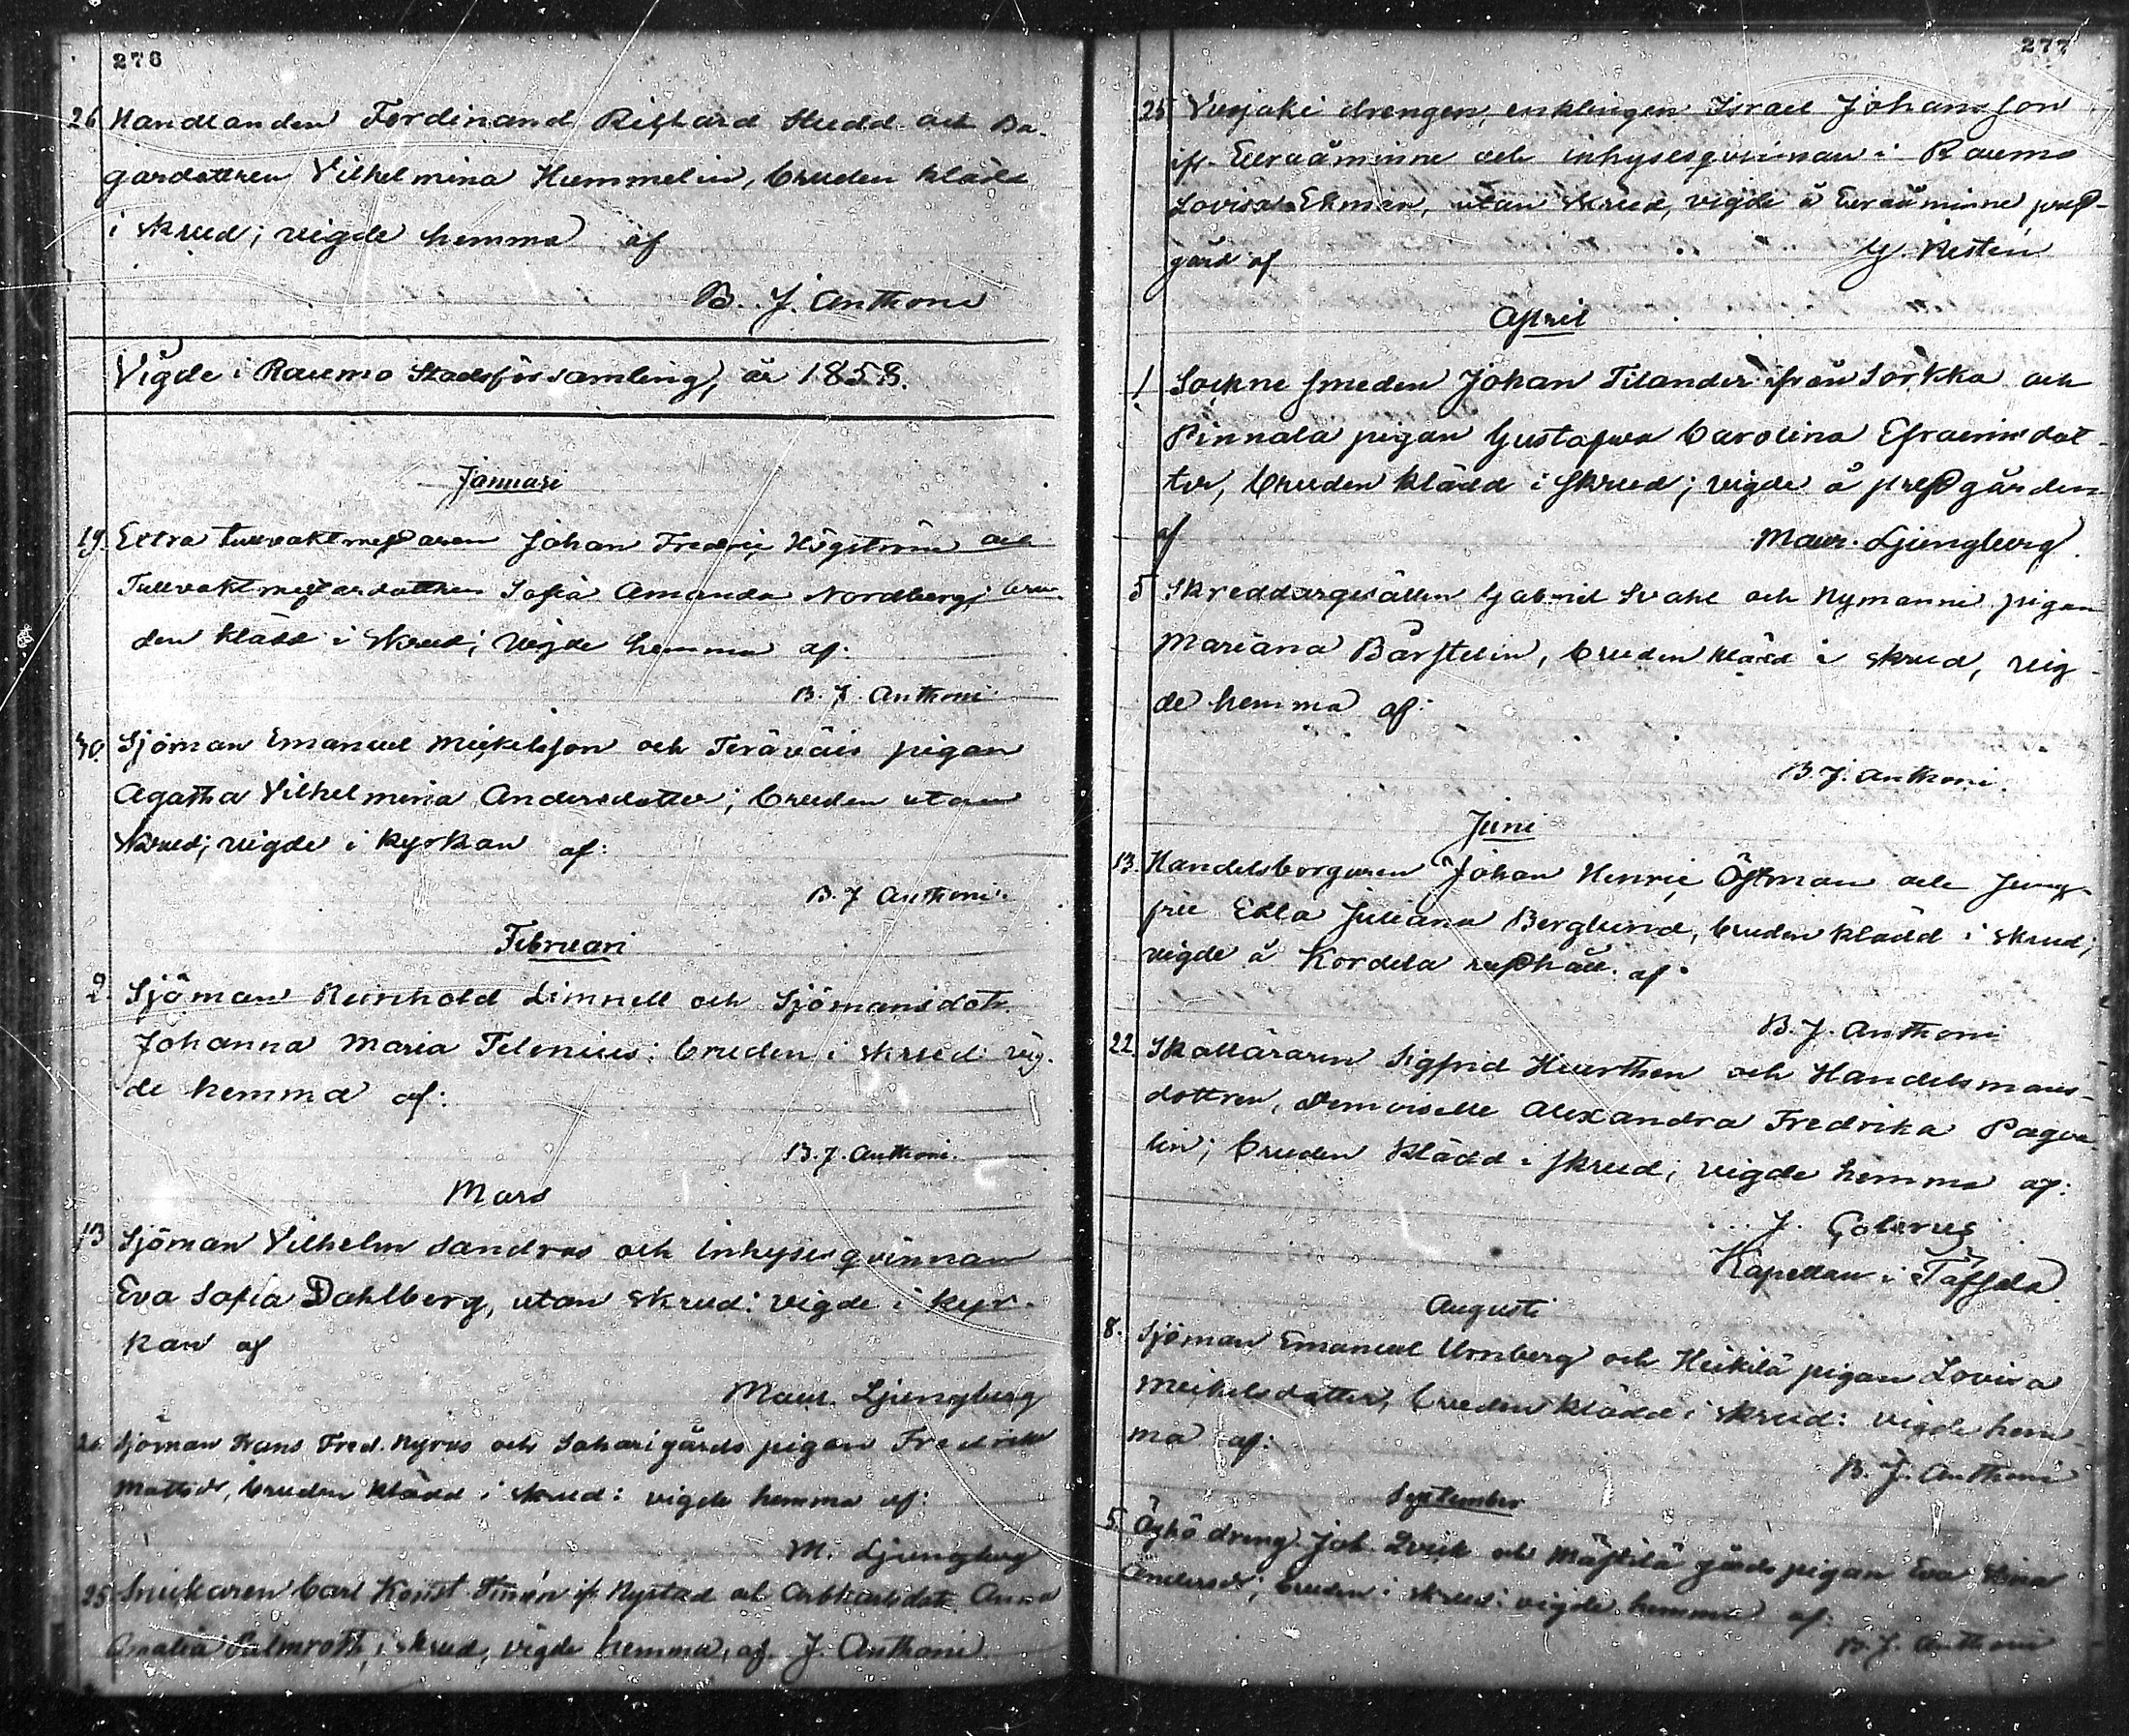 276
26 Handlanden Ferdinand Richard Studd och Ba-
gardottren Vilhelmina Hummelin, bruden klädd
i skrud; vigde hemma af
B. J. Anthoni
Vigde i Raumo Stadsförsamling, år 1858.
Januari
19. Extra tullvaktmästaren Johan Fredric Högström och
Tullvaktmästardottren Sofia Amanda Nordberg; bru-
den klädd i skrud; vigde hemma af:
B. J. Anthoni
30. Sjöman Emanuel Mickelsson och Teräväis pigan
Agatha Vilhelmina Andersdotter; bruden utan
skrud; vigde i kyrkan af:
B. J Anthoni.
Februari
2. Sjöman Reinhold Limnell och Sjömansdotr.
Johanna Maria Telenius: bruden i skrud: vig-
de hemma af:
B. J. Anthoni.
Mars
13 Sjöman Vilhelm Sandros och inhyses qvinnan
Eva Sofia Dahlberg, utan skrud: vigde i kyr-
kan af
Maur. Ljungberg
Sjöman Frans Fred. Nyros och Saharigårds pigan Fredrika
Mattsdr, bruden klädd i skrud: vigde hemma af:
M. Ljungberg
25 Snickaren Carl Konst. Timén ifr. Nystad och Arbkarlsdotr. Anna
Amalia Palmroth, i skrud, vigde hemma, af J. Anthoni.
277
25 Vuojoki drengen, enklingen Israel Johansson
ifr. Euraåminne och inhysesqvinnan i Raumo
Lovisa Ekman, utan skrud, vigde å Euraåminne prest-
gård af G. Kestén
April
1 Sockne smeden Johan Tilander ifrån Sorkka och
Pinnala pigan Gustafva Carolina Efraimsdot-
ter, bruden klädd i skrud; vigde å prestgården
af Maur. Ljungberg.
5 Skreddargesällen Gabriel Svahl och Nymanni pigan
Mariana Bärstelin, bruden klädd i skrud, vig-
de hemma af:
B. J. Anthoni.
Juni
13. Handelsborgaren Johan Henric Östman och Jung-
fru Edla Juliana Berglund, bruden klädd i skrud;
vigde å Kordela rusthåll. af.
B. J. Anthoni
22. Skolläraren Sigfrid Huerthen och Handelsmans-
dottren, Demoiselle Alexandra Fredrika Pagva-
lin; bruden klädd i skrud; vigde hemma af:
J.
Kapellan i
Augusti
8. Sjöman Emanuel Urnberg och Heikilä pigan Lovisa
Meikelsdotter, bruden klädd i skrud: vigde hem-
ma af:
B. J. Anthoni
September
5. Äyhö dreng Joh. Qvick och Mästilä gårds pigan Eva Stina
Andersdr; bruden i skrud: vigde hemma af:
B. J. Anthoni